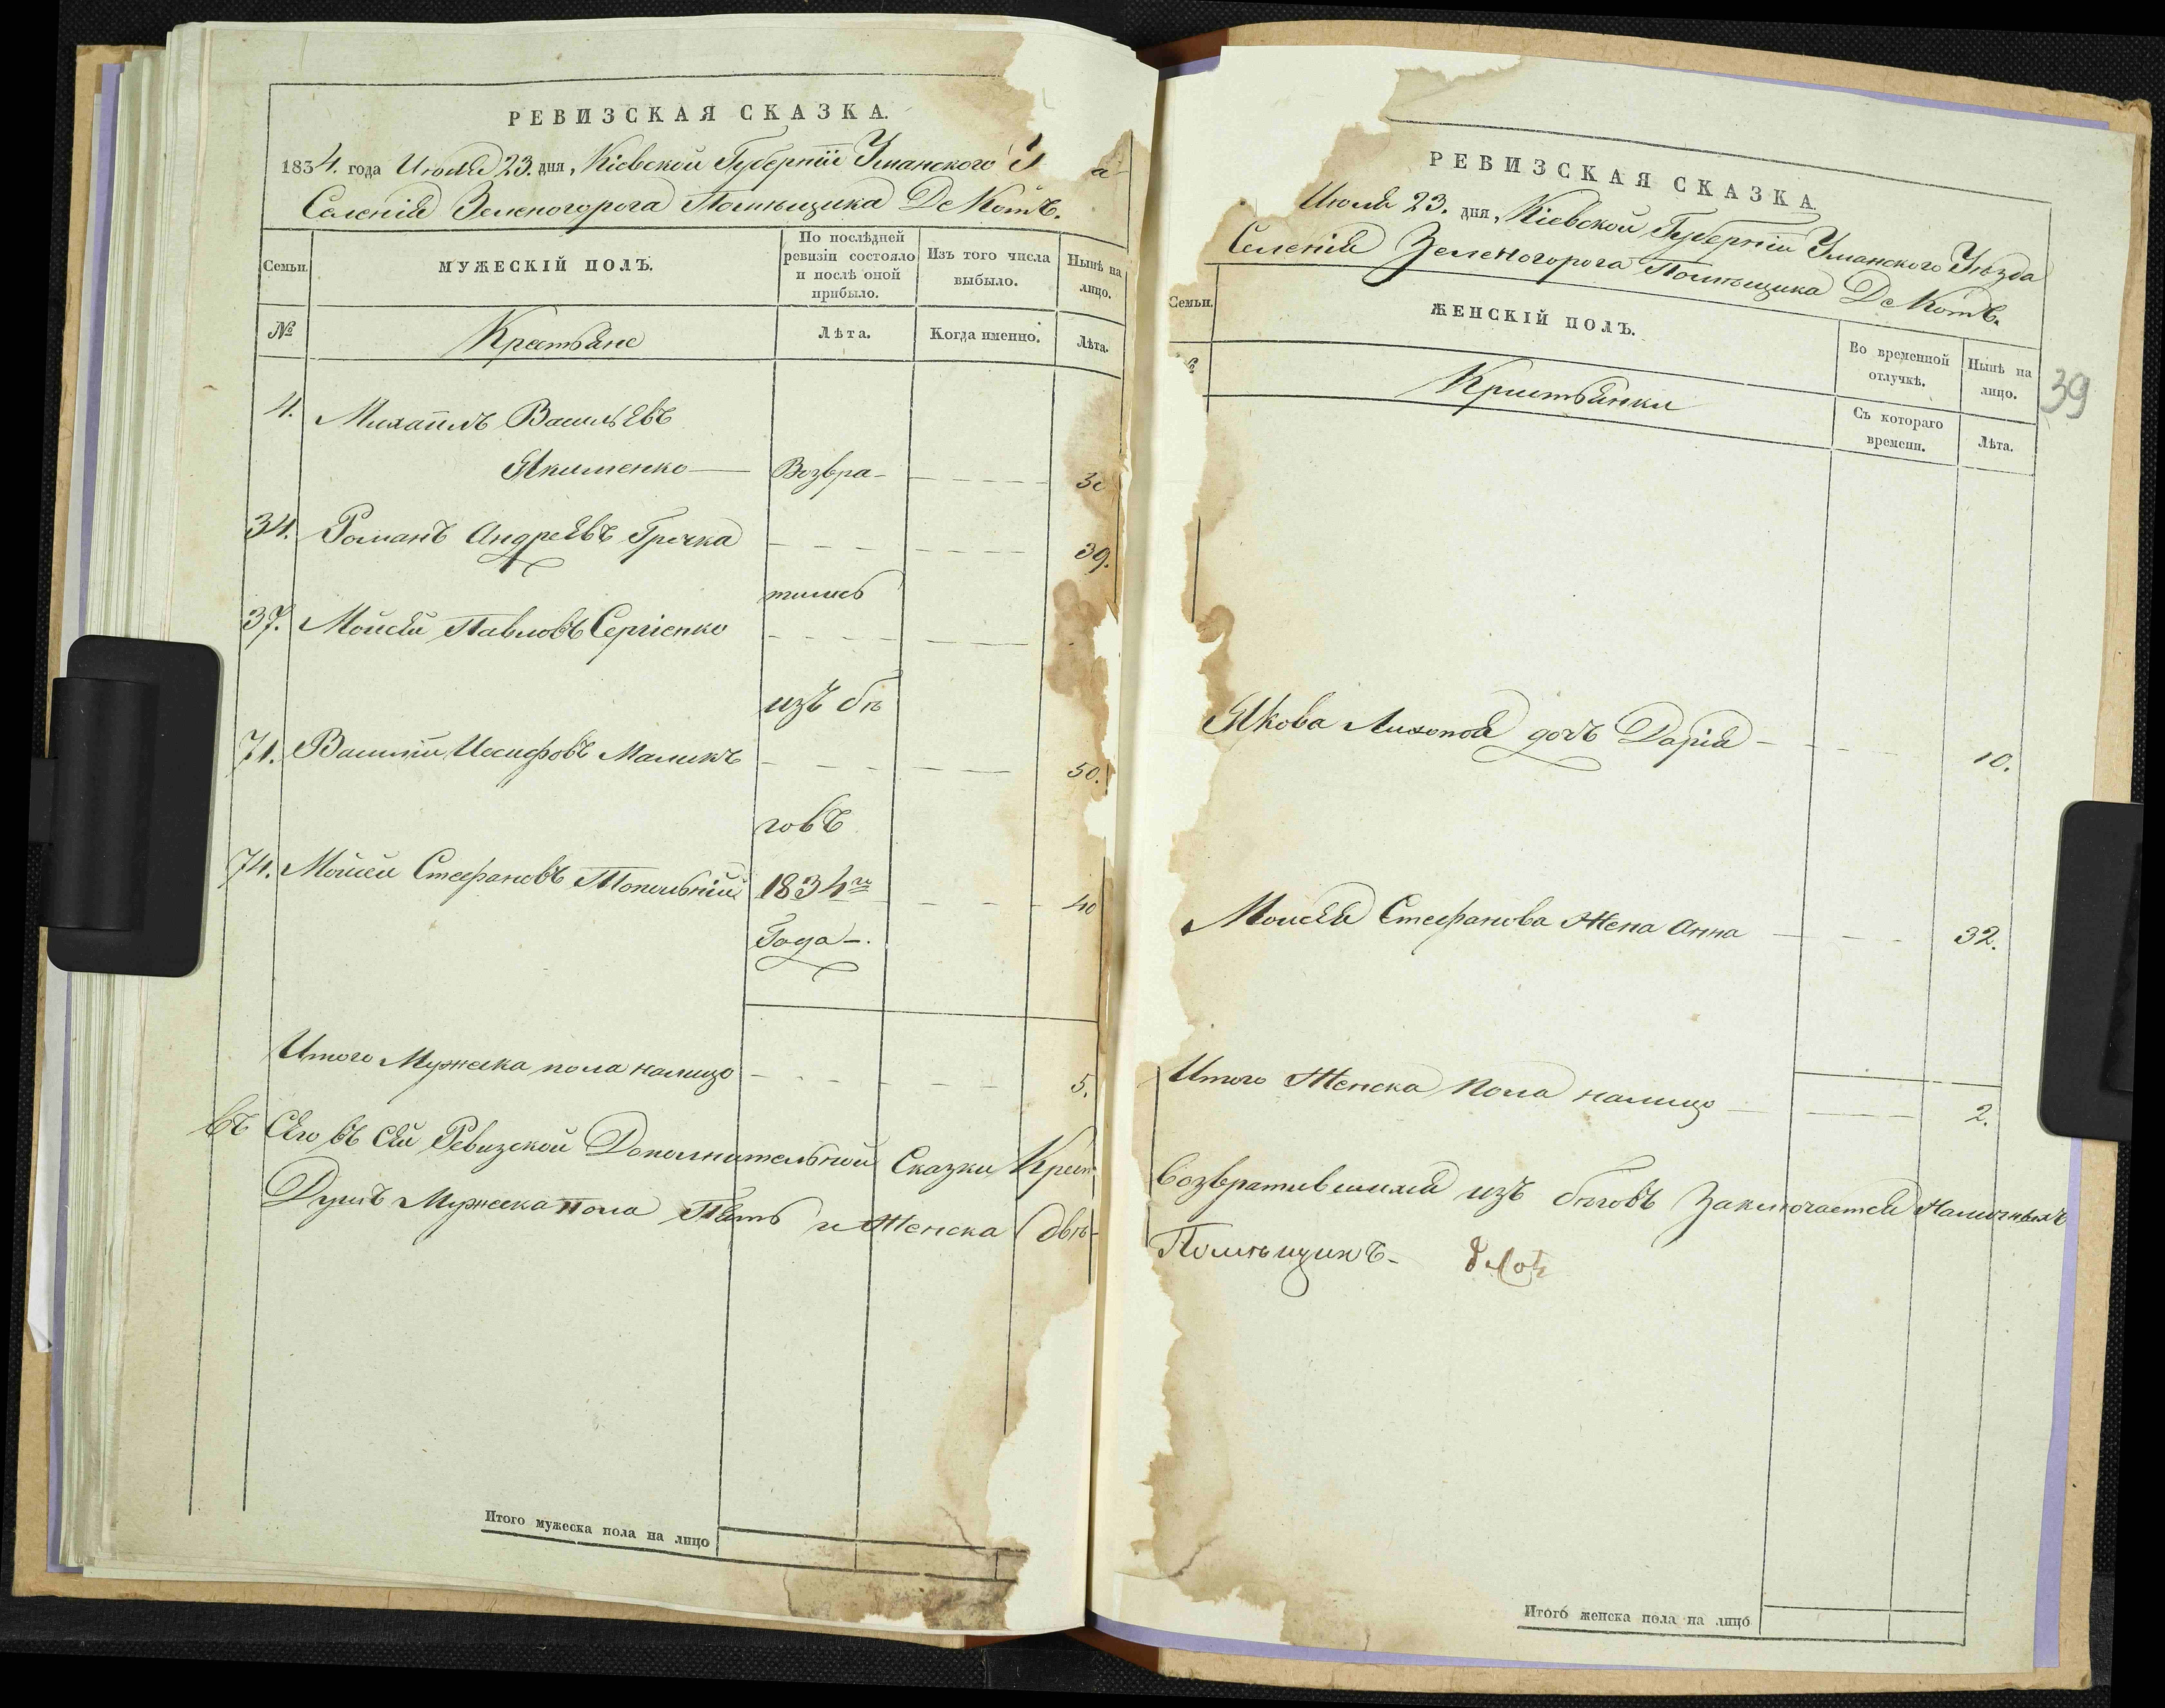 РЕВИЗСКАЯ СКАЗКА.
1834. года Июля 23. дня, Кіевской Губерніи Уманского У а
Селенія Зеленогорога Помѣщика Де Котъ.
Семьи.
МУЖЕСКІЙ ПОЛЪ.
По послѣдней ревизіи состояло и послѣ оной прибыло.
Изъ того числа выбыло.
Нынѣ на лицо.
№
Крестьяне
Лѣта.
Когда именно.
Лѣта.
4. Михаилъ Васильевъ
Якименко — Возвра- 30
34. Романъ Андреевъ Гречка 39.
тились
37. Моисей Павловъ Сергіенко
изъ бѣ
71. Василій Іосифовъ Маликъ 50.
говъ
74. Мойсей Стефановъ Топольній 1834го 40
Года.
Итого Мужеска пола налицо 5.
въ Сего въ сей Ревизской Дополнительной Сказки Крест
Душъ Мужеска пола Пять и Женска двѣ-
Итого мужеска пола на лицо
РЕВИЗСКАЯ СКАЗКА.
Июля 23. дня, Кіевской Губерніи Уманского Уѣзда
Селенія Зеленогорога Помѣщика Де Котъ.
Семьи.
ЖЕНСКІЙ ПОЛЪ.
Во временной отлучкѣ.
Нынѣ на лицо.
39
Кристьянки
Съ котораго времени.
Лѣта.
Якова Лихопоя дочь Дарія 10.
Моисея Стефанова Жена Анна 32.
Итого Женска Пола налицо 2.
возвратившихся изъ бѣговъ Заключается Наличныхъ
Помѣщикъ-
Итого женска пола на лицо